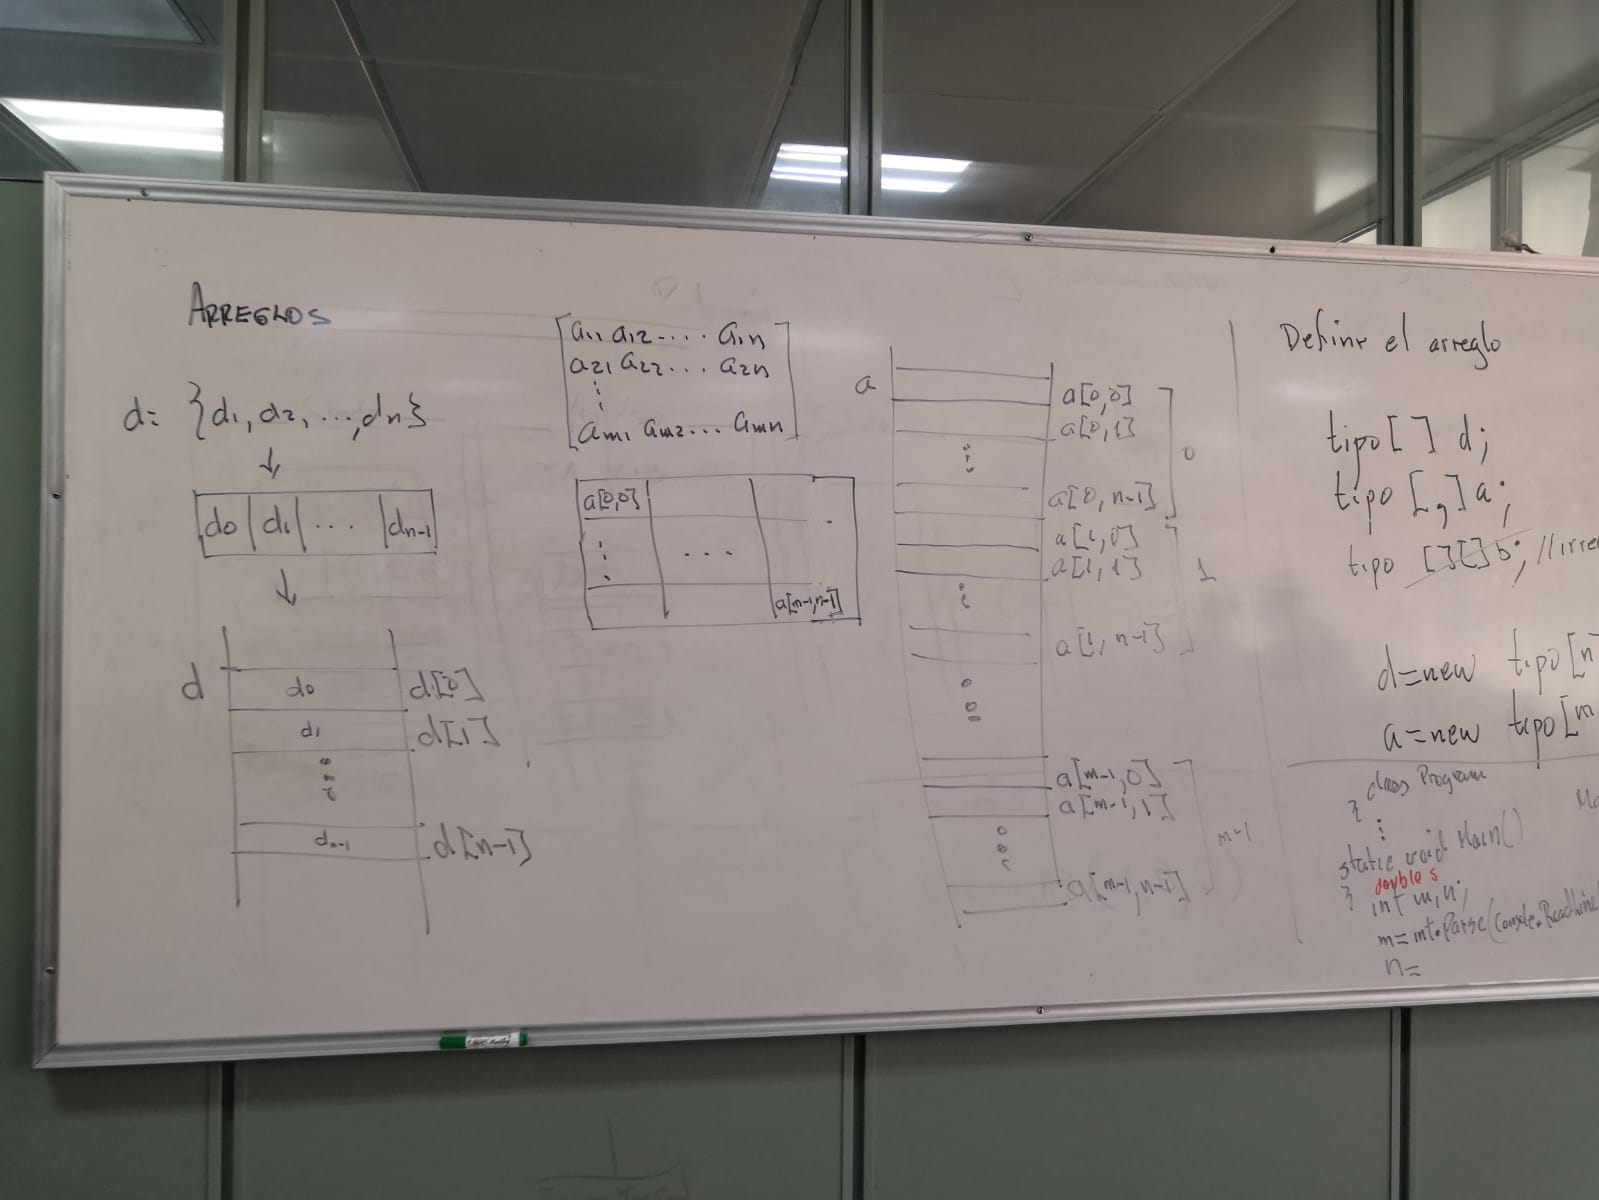 ARREGLOS
d= {d1, d2, ..., dn}
d0 d1 ... dn-1
d
d0 d[0]
d1 d[1]
dn-1 d[n-1]
a11 a12 .... a1n
a21 a22 ... a2n
am1 am2 ... amn
a[0,0]
...
a[m-1,n-1]
a
a[0,0]
a[0,1]
0
a[0,n-1]
a[1,0]
a[1,1]
1
a[1,n-1]
a[m-1,0]
a[m-1,1]
m-1
a[m-1,n-1]
Define el arreglo
tipo[ ] d;
tipo [,] a;
tipo [][] b; //irre
d=new tipo[n
a=new tipo[m
class Program
{
static void Main()
{ double s
int m,n;
m=int.Parse(Console.ReadLine
n=